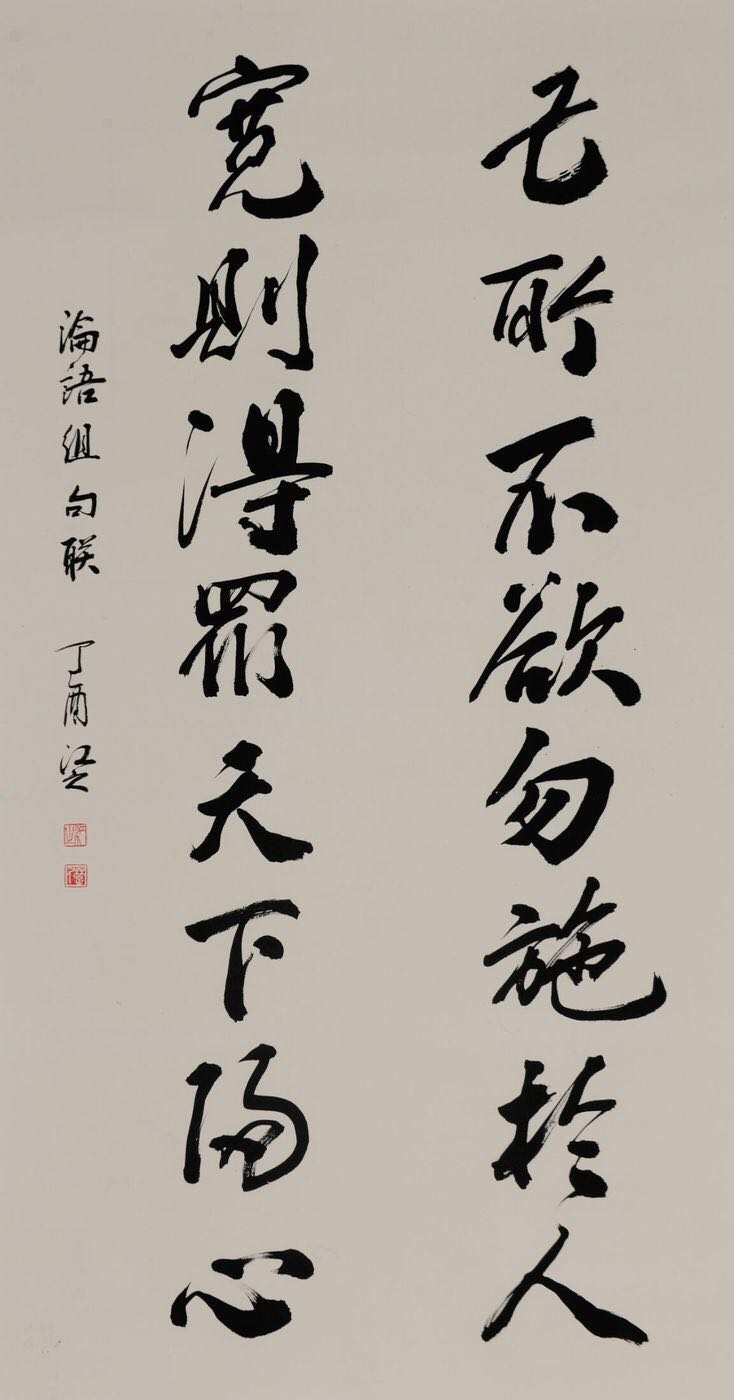 己所不欲勿施於人
寬則得眾天下歸心
論語組句联 丁酉